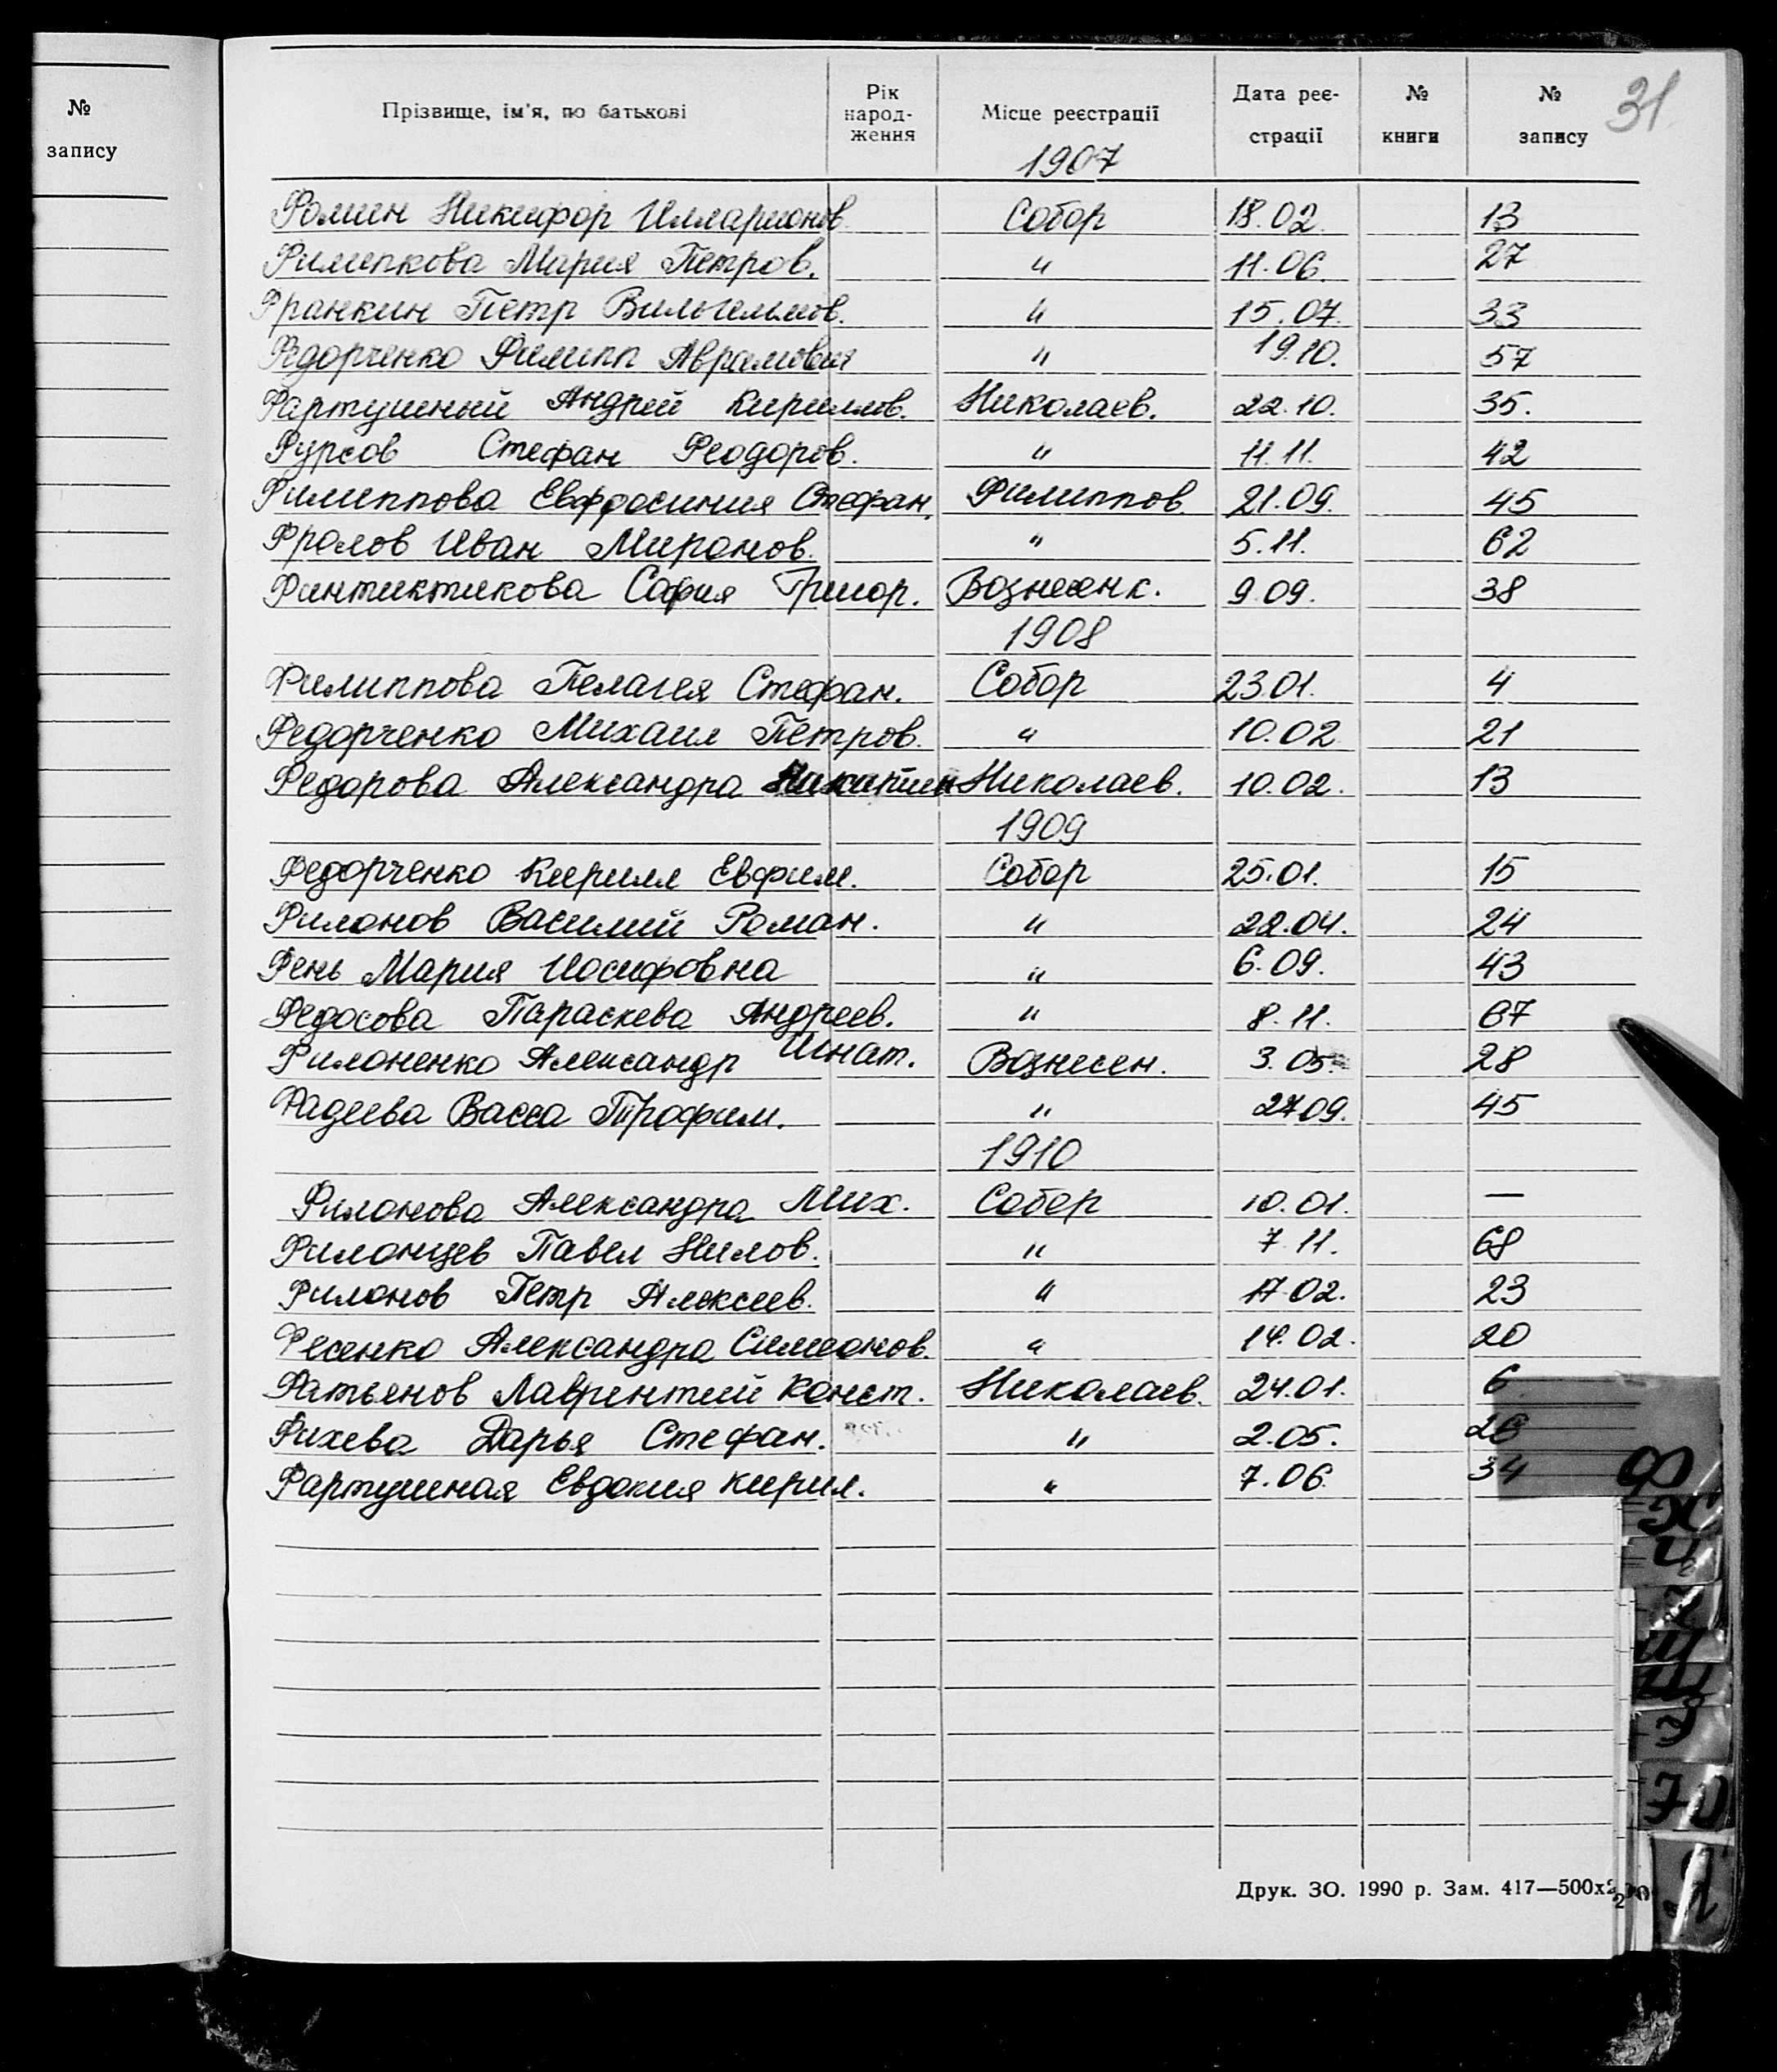 №
запису
Прізвище, ім'я, по батькові Рік народ-ження Місце реєстрації Дата реє-страції № книги № запису 31
1907
Фомин Никифор Илларионов. Собор 18.02. 13
Филипкова Мария Петров. " 11.06. 27
Франкин Петр Вильгельмов. " 15.07. 33
Федорченко Филипп Аврамович " 19.10. 57
Фартушный Андрей Кириллов. Николаев. 22.10. 35.
Фурсов Стефан Феодоров. " 11.11. 42
Филиппова Евфросиния Стефан. Филиппов. 21.09. 45
Фролов Иван Миронов. " 5.11. 62
Финтиктикова София Григор. Вознесенск. 9.09. 38
1908
Филиппова Пелагея Стефан. Собор 23.01. 4
Федорченко Михаил Петров. " 10.02. 21
Федорова Александра Никитин Николаев. 10.02. 13
1909
Федорченко Кирилл Евфим. Собор 25.01. 15
Филонов Василий Роман. " 22.04. 24
Фень Мария Иосифовна " 6.09. 43
Федосова Параскева Андреев. " 8.11. 67
Филоненко Александр Игнат. Вознесен. 3.05. 28
Фадеева Васса Трофим. " 27.09. 45
1910
Филонова Александра Мих. Собор 10.01. —
Филонцев Павел Нилов. " 7.11. 68
Филонов Петр Алексеев. " 17.02. 23
Фесенко Александра Симеонов. " 14.02. 20
Фатьянов Лаврентий Конст. Николаев. 24.01. 6
Фихева Дарья Стефан. " 2.05. 26
Фартушная Евдокия Кирил. " 7.06. 34
Ф
Х
Ц
Ч
Ш
Щ
Э
Ю
Я
Друк. ЗО. 1990 р. Зам. 417—500х2